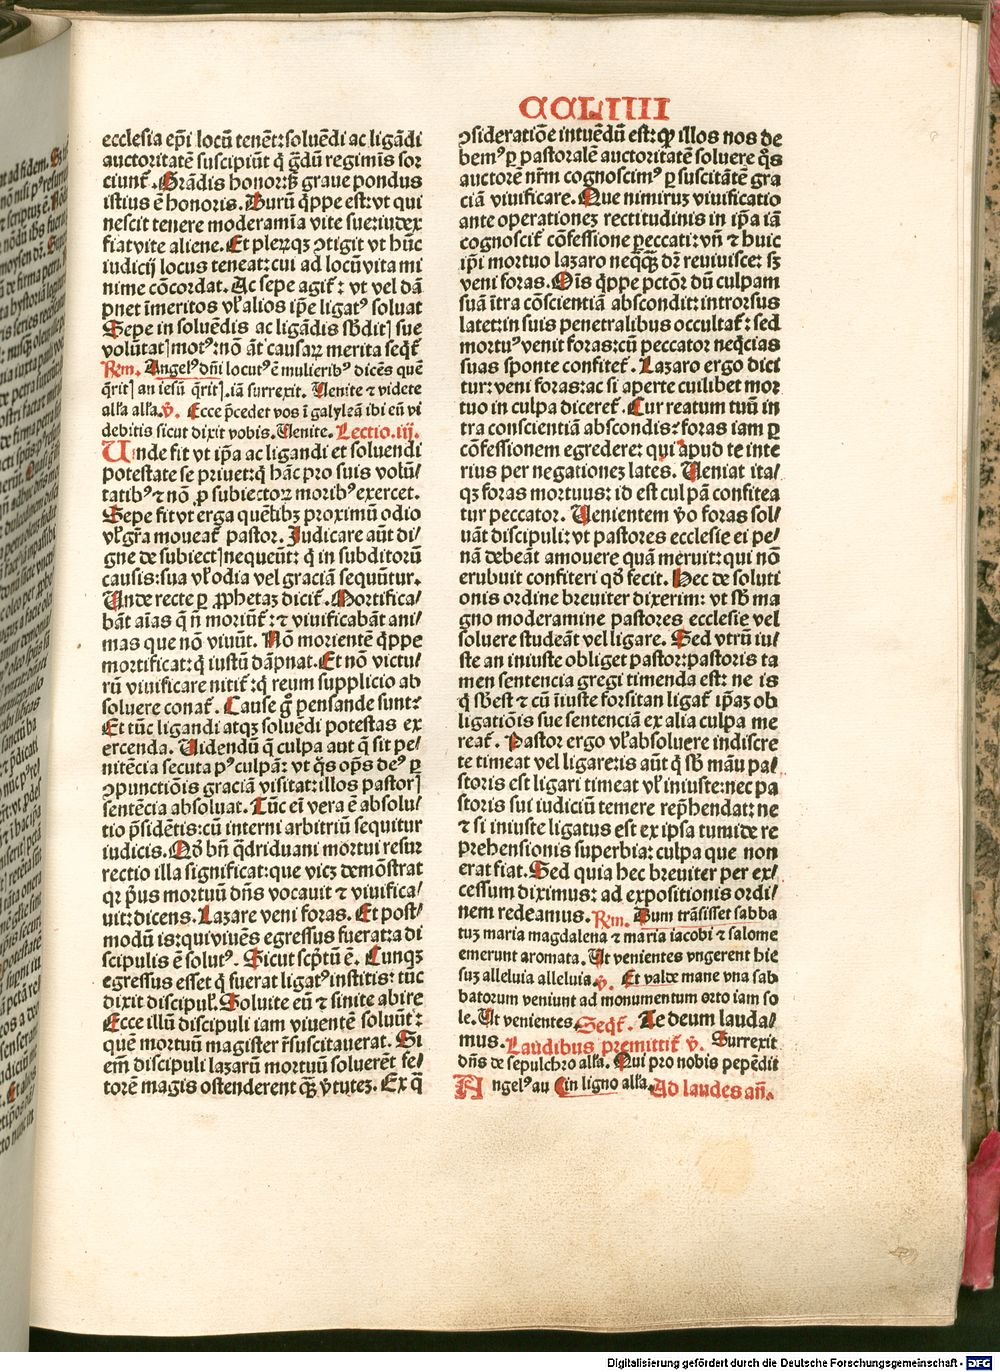 CCLIIII
ecclesia ep̄i locū tenēt: soluēdi ac ligādi
auctoritatē suscipiūt q̇ gͣdū regimīs sor
ciunt᷑. Grādis honor: sꝫ graue pondus
istius ē honoris. Durū q̇ppe est: vt qui
nescit tenere moderamīa vite sue: iudex
fiat vite aliene. Et pleꝝqꝫ ↄtigit vt hūc
iudicij locus teneat: cui ad locū vita mi
nime cōcordat. Ac sepe agit᷑: vt vel dā
pnet īmeritos vl̓ alios ip̄e ligatꝰ soluat
Sepe in soluēdis ac ligādis sb̄ditꝭ sue
volūtatꝭ motꝰ: nō āt causaꝝ merita seqt᷑
Rm̄. Angelꝰ dn̄i locutꝰ ē mulieribꝰ dicēs quē
q̄ritꝭ an iesū q̄ritꝭ. iā surrexit. Venite ⁊ videte
alla alla. v̄. Ecce p̄cedet vos ī galyleā ibi eū vi
debitis sicut dixit vobis. Venite. Lectio. iij.
Unde fit vt ip̄a ac ligandi et soluendi
potestate se priuet: q̇ hāc pro suis volū/
tatibꝰ ⁊ nō ꝓ subiectoꝝ moribꝰ exercet.
Sepe fit vt erga quēlibꝫ proximū odio
vl̓ gr̄a moueat᷑ pastor. Judicare aūt di/
gne de subiectꝭ nequeūt: q̇ in subditorū
causis: sua vl̓ odia vel graciā sequūtur.
Unde recte ꝑ ꝓphetaꝫ dicit᷑. Mortifica/
bāt aīas q̄ n̄ moriūt᷑: ⁊ viuificabāt ani/
mas que nō viuūt. Nō morientē q̇ppe
mortificat: q̇ iustū dāpnat. Et nō victu/
rū viuificare nitit᷑: q̇ reum supplicio ab
soluere conat᷑. Cause gͦ pensande sunt:
Et tūc ligandi atqꝫ soluēdi potestas ex
ercenda. Uidendū q̄ culpa aut q̄ sit pe/
nitēcia secuta pꝰ culpā: vt q̇s op̄s deꝰ ꝑ
ↄpunctiōis graciā visitat: illos pastorꝭ
sentēcia absoluat. Tūc eī vera ē absolu/
tio p̄sidētis: cū interni arbitriū sequitur
iudicis. Qō bn̄ q̇driduani mortui resur
rectio illa significat: que viꝫ demōstrat
qꝛ p̄us mortuū dn̄s vocauit ⁊ viuifica/
uit: dicens. Lazare veni foras. Et post/
modū is: qui viuēs egressus fuerat: a di
scipulis ē solutꝰ. Sicut scp̄tū ē. Cunqꝫ
egressus esset q̇ fuerat ligatꝰ institis: tūc
dixit discipul̓. Soluite eū ⁊ sinite abire
Ecce illū discipuli iam viuentē soluūt:
quē mortuū magister r̄suscitauerat. Si
em̄ discipuli lazarū mortuū soluerēt fe/
torē magis ostenderent qͣꝫ v̓tuteꝫ. Ex q̇
ↄsideratiōe intuēdū est: ꝙ illos nos de
bemꝰ ꝑ pastoralē auctoritatē soluere q̇s
auctorē nr̄m cognoscimꝰ ꝑ suscitātē gra
ciā viuificare. Que nimiruꝫ viuificatio
ante operationeꝫ rectitudinis in ip̄a iā
cognoscit᷑ cōfessione peccati: vn̄ ⁊ huic
ip̄i mortuo lazaro neq̇qͣꝫ dr̄ reuiuisce: sꝫ
veni foras. Oīs q̇ppe pctōr dū culpam
suā ītra cōscientiā abscondit: introrsus
latet: in suis penetralibus occultat᷑: sed
mortuꝰ venit foras: cū peccator neq̇cias
suas sponte confitet᷑. Lazaro ergo dici
tur: veni foras: ac si aperte cuilibet mor
tuo in culpa diceret᷑. Cur reatum tuū in
tra conscientiā abscondis: foras iam ꝑ
cōfessionem egredere: qui apud te inte
rius per negationeꝫ lates. Veniat ita/
qꝫ foras mortuus: id est culpā confitea
tur peccator. Uenientem v̓o foras sol/
uāt discipuli: vt pastores ecclesie ei pe/
nā debeāt amouere quā meruit: qui nō
erubuit confiteri qd̓ fecit. Hec de soluti
onis ordine breuiter dixerim: vt sb̄ ma
gno moderamine pastores ecclesie vel
soluere studeāt vel ligare. Sed vtrū iu/
ste an iniuste obliget pastor: pastoris ta
men sentencia gregi timenda est: ne is
q̇ sb̓est ⁊ cū īiuste forsitan ligat᷑ ip̄aꝫ ob
ligatiōis sue sentenciā ex alia culpa me
reat᷑. Pastor ergo vl̓ absoluere indiscre
te timeat vel ligare: is aūt q̇ sb̄ māu pa/
storis est ligari timeat vl̓ iniuste: nec pa
storis sui iudiciū temere rep̄hendat: ne
⁊ si iniuste ligatus est ex ipsa tumide re
prehensionis superbia: culpa que non
erat fiat. Sed quia hec breuiter per ex/
cessum diximus: ad expositionis ordi/
nem redeamus. Rm̄. Dum trāsisset sabba
tuꝫ maria magdalena ⁊ maria iacobi ⁊ salome
emerunt aromata. Ut venientes vngerent hie
suꝫ alleluia alleluia. v̄. Et valde mane vna sab
batorum veniunt ad monumentum orto iam so
le. Ut venientes. Seqt᷑. Te deum lauda/
mus. Laudibus premittit᷑ v̄. Surrexit
dn̄s de sepulchro alla. Qui pro nobis pepēdit
Angelꝰ au in ligno alla. Ad laudes an̄.
Digitalisierung gefördert durch die Deutsche Forschungsgemeinschaft - DFG